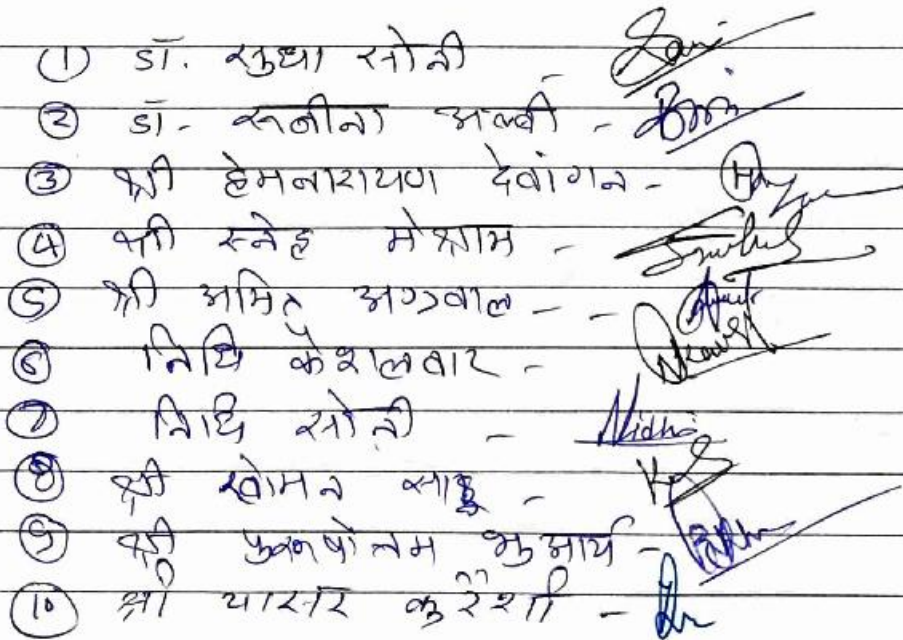 ① डॉ. सुधा सोनी -
② डॉ. रूनीना अल्वी -
③ श्री हेमनारायण देवांगन -
④ श्री स्नेह मेश्राम -
⑤ श्री अमित अग्रवाल - -
⑥ निधि -
⑦ निधि सोनी - Nidhi
⑧ श्री खोमन साहू -
⑨ श्री पुरूषोत्तम भुआर्य -
⑩ श्री यासर कुरैशी -